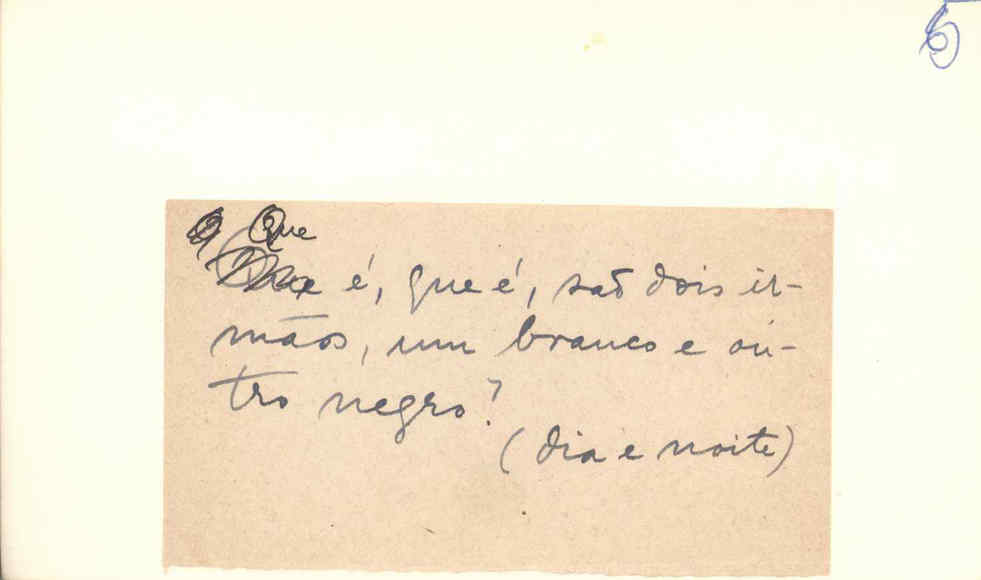 5
Que
é, que é, são dois ir-
mãos, um branco e ou-
tro negro?
(dia e noite)